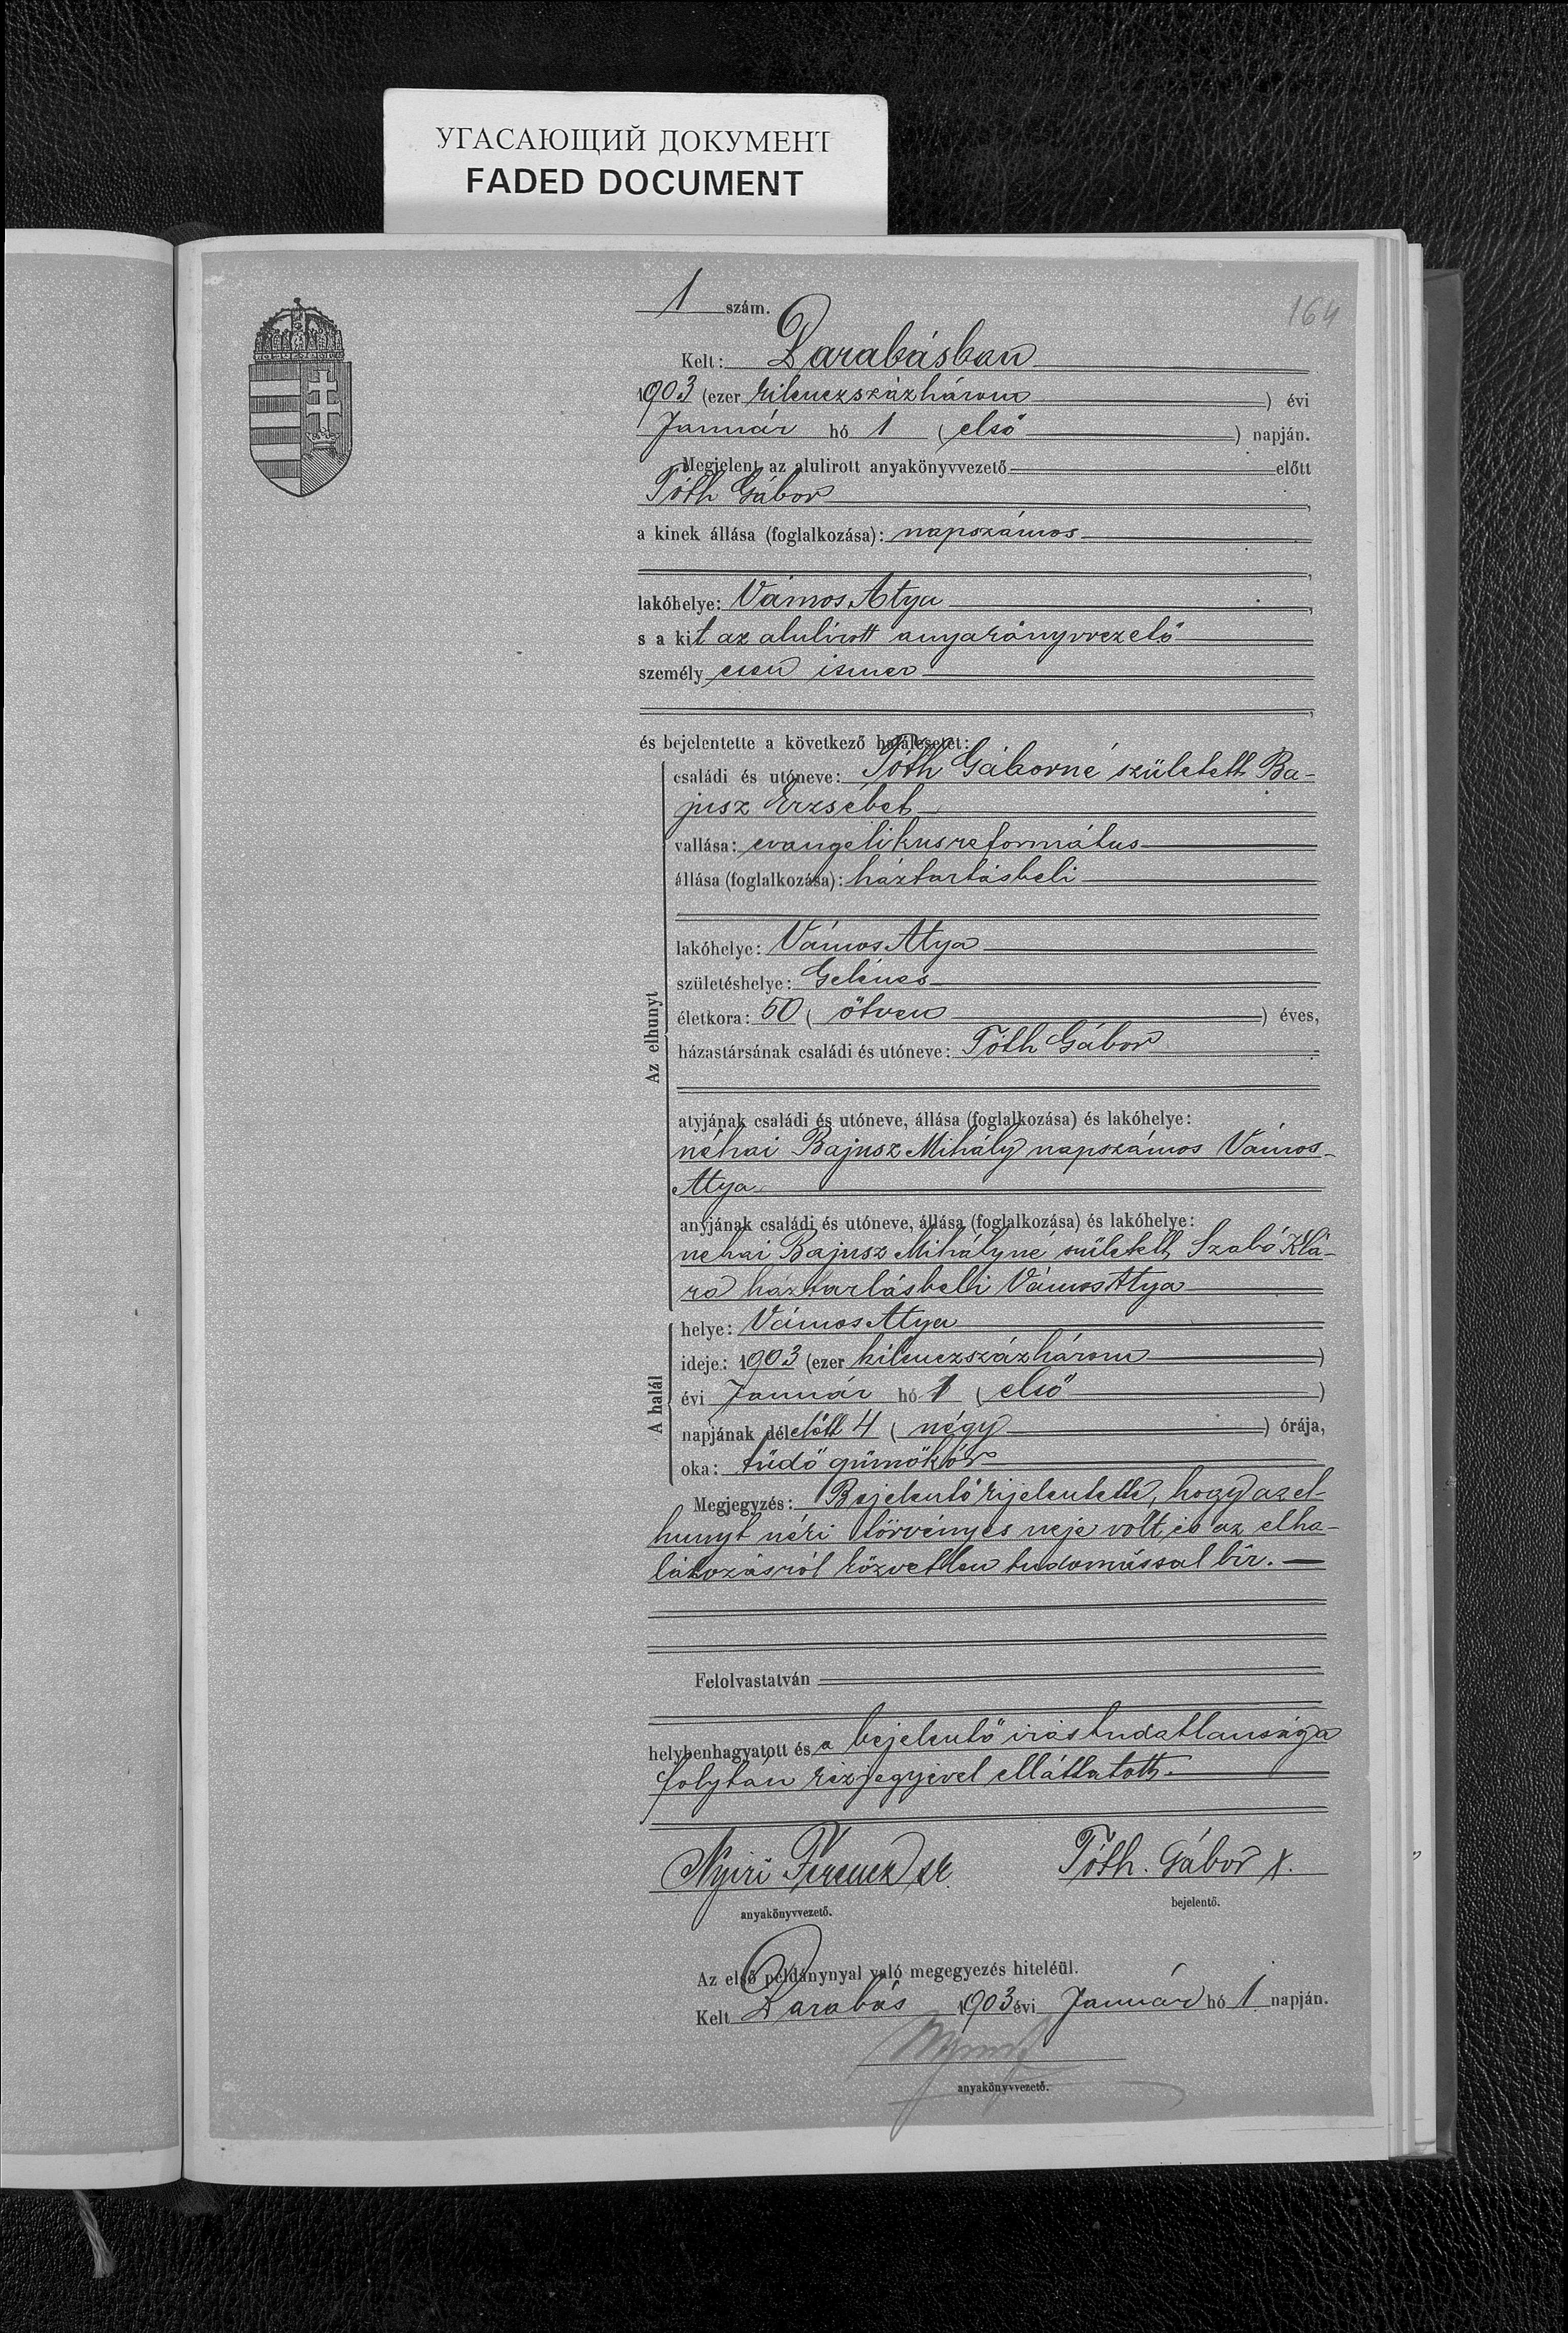 УГАСАЮЩИЙ ДОКУМЕНТ
FADED DOCUMENT
164
1 szám.
Kelt: Darabásban
1903 (ezer kilenczszázhárom) évi
Január hó 1 (első) napján.
Megjelent az alulirott anyakönyvvezető előtt
Tóth Gábor,
a kinek állása (foglalkozása): napszámos
lakóhelye: Vámos Atya,
s a kit az alulírott anyakönyvvezető
személyesen ismer
és bejelentette a következő halálesetet:
Az elhunyt
családi és utóneve: Tóth Gáborné született Ba-
jusz Erzsébet
vallása: evangelikusreformátus
állása (foglalkozása): háztartásbeli
lakóhelye: Vámos Atya
születéshelye: Gelénes
életkora: 50 (ötven) éves,
házastársának családi és utóneve: Tóth Gábor
atyjának családi és utóneve, állása (foglalkozása) és lakóhelye:
néhai Bajusz Mihály napszámos Vámos-
Atya
anyjának családi és utóneve, állása (foglalkozása) és lakóhelye:
néhai Bajusz Mihályné született Szabó Klá-
ra háztartásbeli Vámos Atya
A halál
helye: Vámos Atya
ideje: 1903 (ezer kilenczszázhárom)
évi Január hó 1 (első)
napjának délelőtt 4 (négy) órája,
oka: tüdő gümőkór
Megjegyzés: Bejelentő kijelentette, hogy az el-
hunyt néki törvényes neje volt, és az elha-
lálozásról közvetlen tudomással bír.
Felolvastatván
helybenhagyatott és a bejelentő irástudatlansága
folytán kézjegyével elláttatott.
Nyiri Ferencz sk.
Tóth Gábor x.
anyakönyvvezető.
bejelentő.
Az első példánynyal való megegyezés hiteléül.
Kelt Darabás 1903 évi Január hó 1 napján.
anyakönyvvezető.